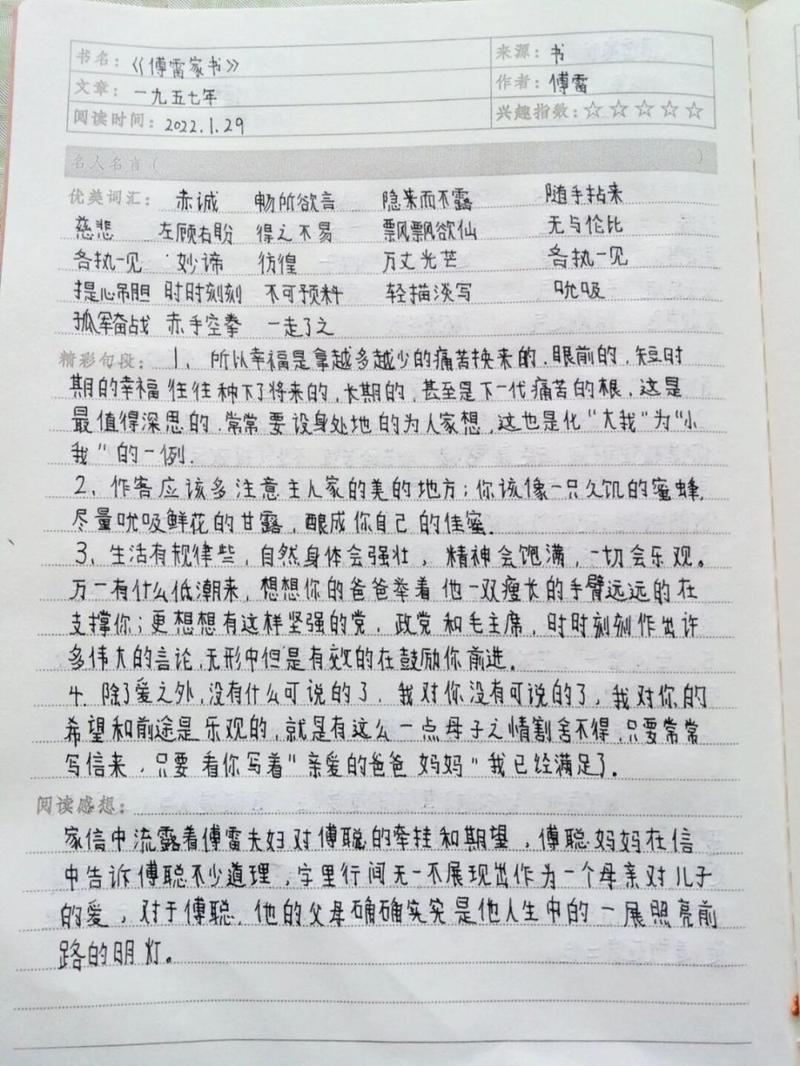 书名：《傅雷家书》 来源：书
文章：一九五七年 作者：傅雷
阅读时间：2022.1.29 兴趣指数：☆☆☆☆☆
名人名言（ ）
优美词汇：赤诚 畅所欲言 隐来而不露 随手拈来
慈悲 左顾右盼 得之不易 飘飘欲仙 无与伦比
各执一见 妙谛 彷徨 万丈光芒 各执一见
提心吊胆 时时刻刻 不可预料 轻描淡写 吮吸
孤军奋战 赤手空拳 一走了之
精彩句段：1、所以幸福是拿越多越少的痛苦换来的.眼前的,短时
期的幸福往往种下了将来的,长期的,甚至是下一代痛苦的根,这是
最值得深思的.常常要设身处地的为人家想,这也是化“大我”为“小
我”的一例.
2、作客应该多注意主人家的美的地方;你该像一只久饥的蜜蜂,
尽量吮吸鲜花的甘露,酿成你自己的佳蜜.
3、生活有规律些，自然身体会强壮，精神会饱满，一切会乐观。
万一有什么低潮来，想想你的爸爸举着他一双瘦长的手臂远远的在
支撑你;更想想有这样坚强的党、政党和毛主席，时时刻刻作出许
多伟大的言论,无形中但是有效的在鼓励你前进。
4.除了爱之外,没有什么可说的了，我对你没有可说的了，我对你的
希望和前途是乐观的,就是有这么一点母子之情割舍不得,只要常常
写信来，只要看你写着“亲爱的爸爸妈妈”我已经满足了.
阅读感想：
家信中流露着傅雷夫妇对傅聪的牵挂和期望，傅聪妈妈在信
中告诉傅聪不少道理，字里行间无一不展现出作为一个母亲对儿子
的爱，对于傅聪，他的父母确确实实是他人生中的一展照亮前
路的明灯。